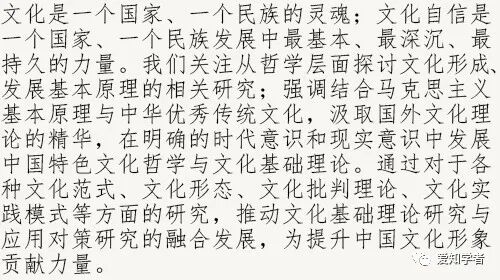 文化是一个国家、一个民族的灵魂；文化自信是
一个国家、一个民族发展中最基本、最深沉、最
持久的力量。我们关注从哲学层面探讨文化形成、
发展基本原理的相关研究；强调结合马克思主义
基本原理与中华优秀传统文化，汲取国外文化理
论的精华，在明确的时代意识和现实意识中发展
中国特色文化哲学与文化基础理论。通过对于各
种文化范式、文化形态、文化批判理论、文化实
践模式等方面的研究，推动文化基础理论研究与
应用对策研究的融合发展，为提升中国文化形象
贡献力量。
爱知学者